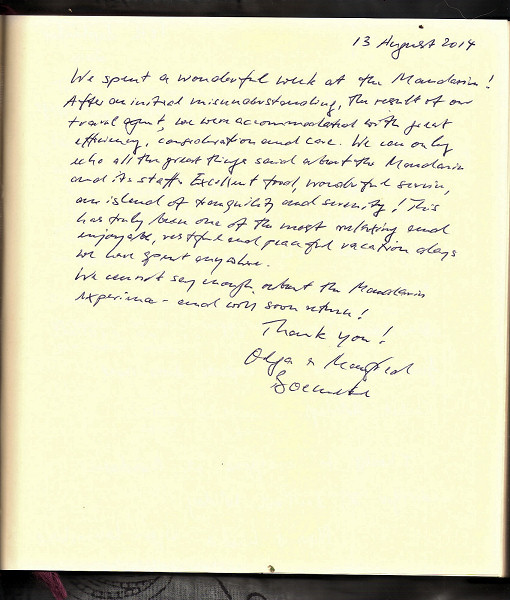 13 August 2014
We spent a wonderful week at the Mandarin!
After an initial misunderstanding, the result of our
travel agent, we were accommodated with great
efficiency, consideration and care. We can only
echo all the great things said about the Mandarin
and its staff. Excellent food, wonderful service,
an island of tranquility and serenity! This
has truly been one of the most relaxing and
enjoyable, restful and peaceful vacation days
we have spent anywhere.
We cannot say enough about the Mandarin
experience - and will soon return!
Thank you!
Olga & Manfred